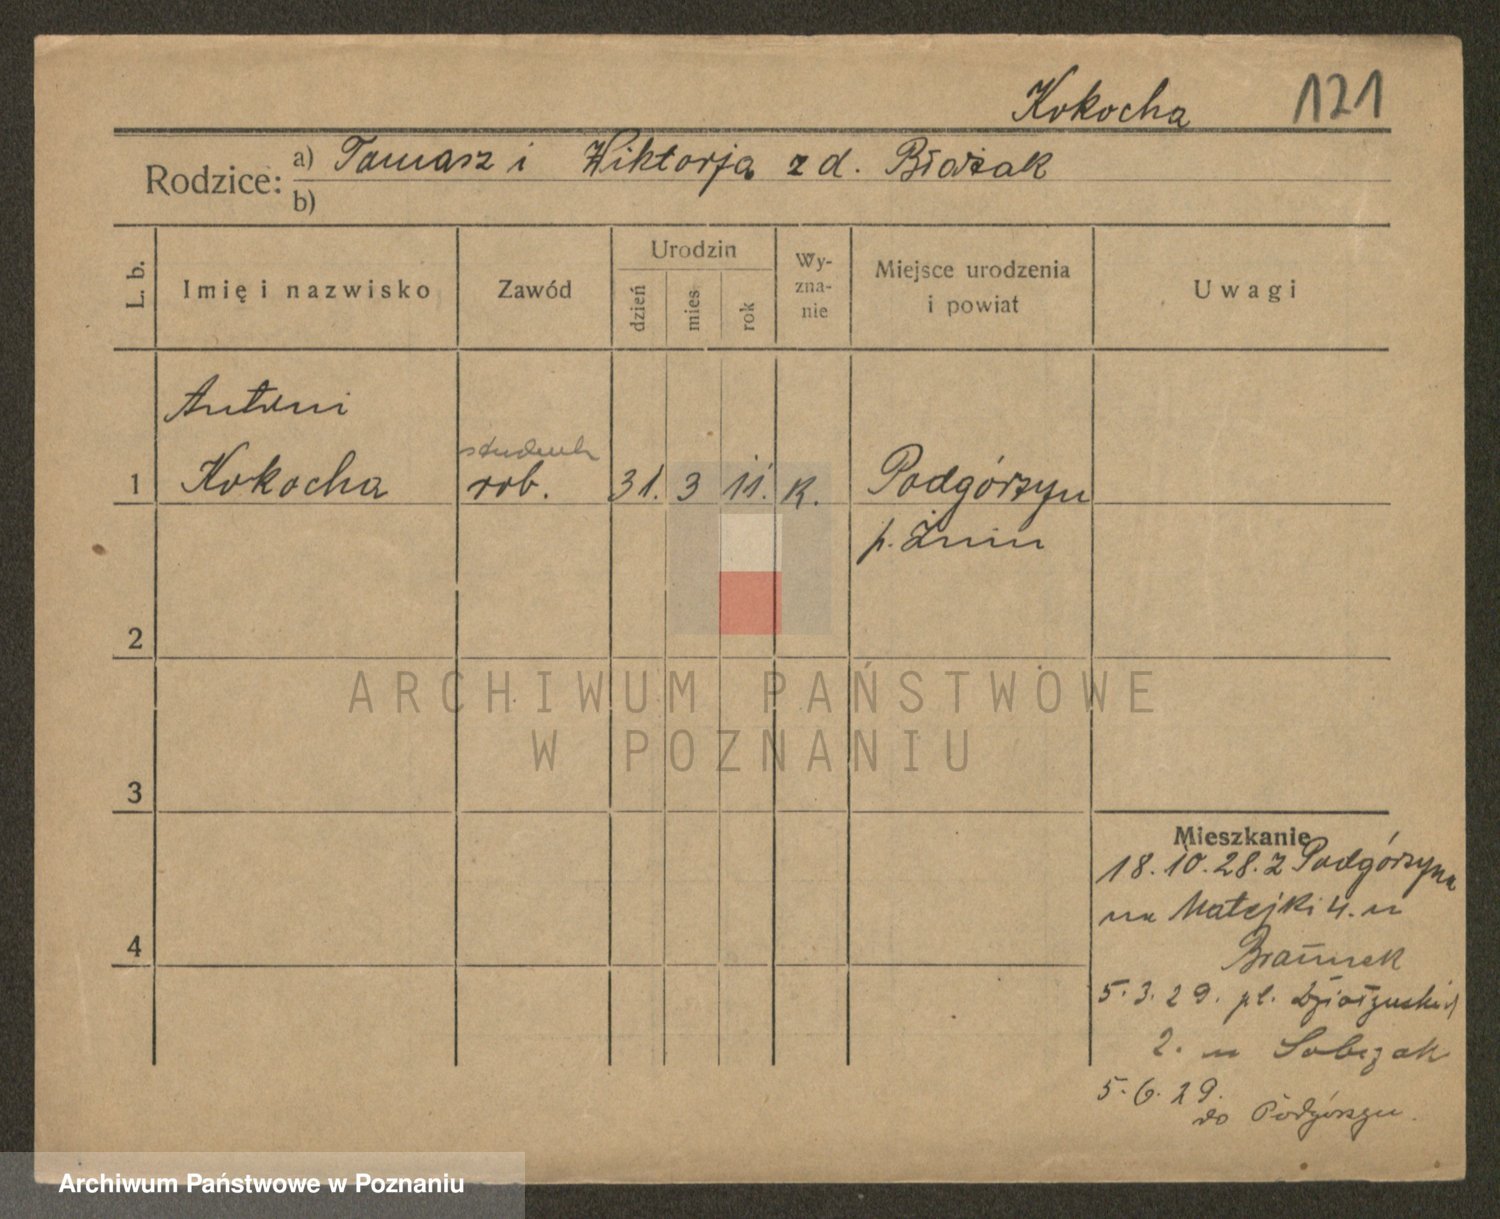 Kokocha 121
Rodzice: a) Tamasz i Wiktorja z d. Błażak
b)
L. b. Imię i nazwisko Zawód Urodzin dzień mies rok Wy-zna-nie Miejsce urodzenia i powiat Uwagi
Antoni
student
1 Kokocha rob. 31. 3 11. k. Podgórzyn
p. Żnin
2
ARCHIWUM PAŃSTWOWE
W POZNANIU
3
Mieszkanie
18.10.28. z Podgórzyna
na Matejki 4. u
4
5.3.29. pl.
2. u Sobczak
5.6.29.
do Podgórzyn.
Archiwum Państwowe w Poznaniu